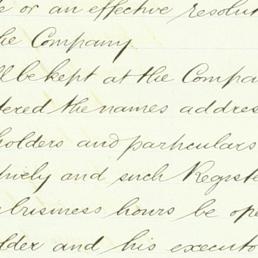 e or an effective resolut
he Company.
ll be kept at the Compa
tered the names address
holders and particulars
tively and such Registe
business hours be ope
lder and his executo